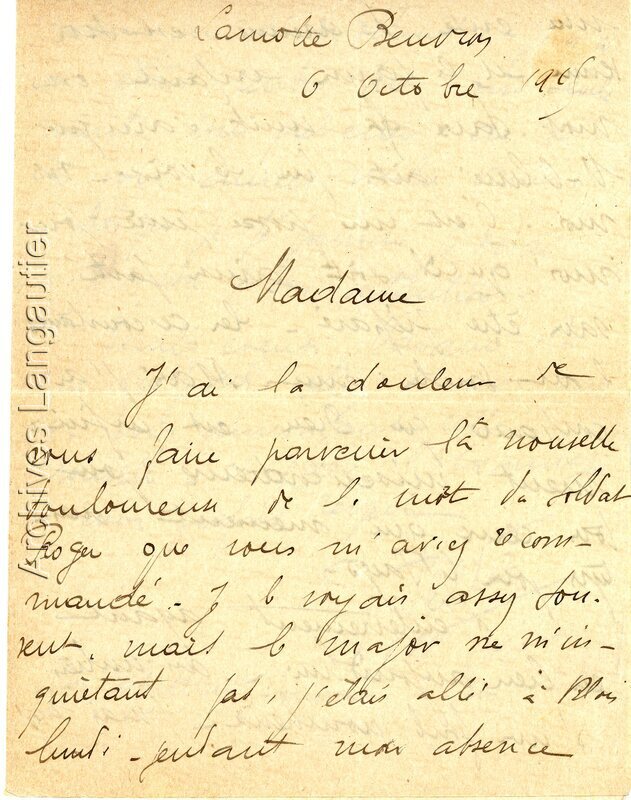 Lamotte Beuvron
6 Octobre 1915
Madame
J'ai la douleur de
vous faire parvenir la nouvelle
douloureuse de la mort du soldat
Roger que vous m'aviez recom-
mandé - Je le voyais assez sou-
vent, mais le major ne m'in-
quiétant pas, j'étais allé à Blois
lundi - pendant mon absence
Archives Langautier